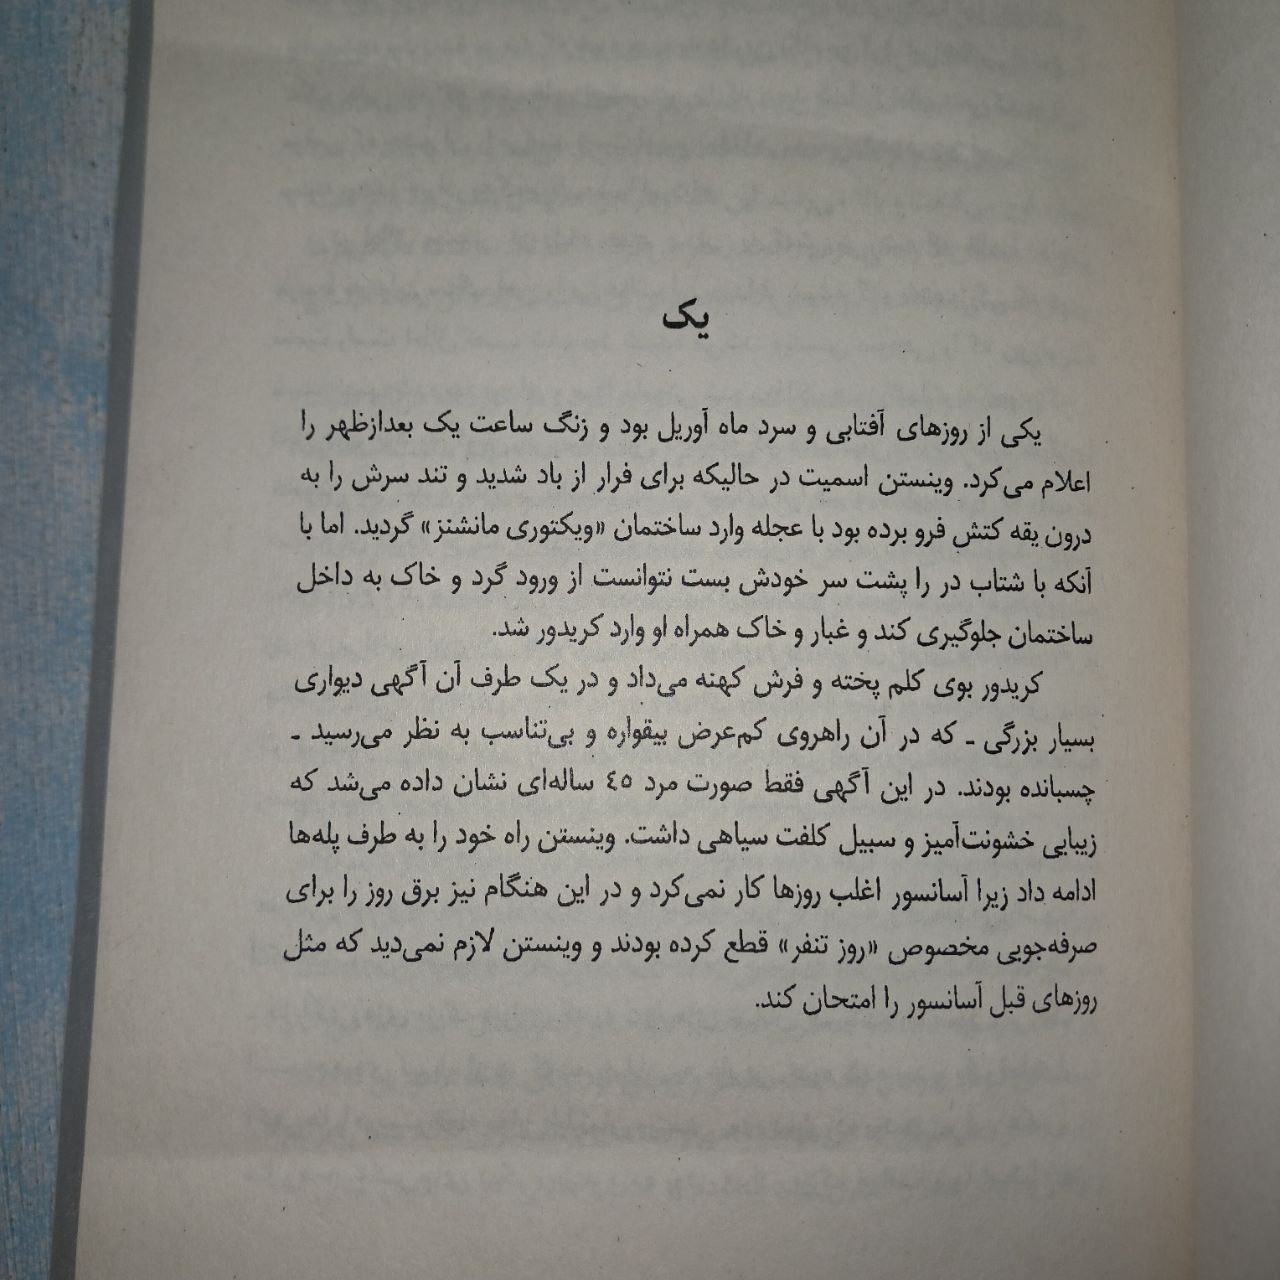 یک
یکی از روزهای آفتابی و سرد ماه آوریل بود و زنگ ساعت یک بعدازظهر را
اعلام می‌کرد. وینستن اسمیت در حالیکه برای فرار از باد شدید و تند سرش را به
درون یقه کتش فرو برده بود با عجله وارد ساختمان «ویکتوری مانشنز» گردید. اما با
آنکه با شتاب در را پشت سر خودش بست نتوانست از ورود گرد و خاک به داخل
ساختمان جلوگیری کند و غبار و خاک همراه او وارد کریدور شد.
کریدور بوی کلم پخته و فرش کهنه می‌داد و در یک طرف آن آگهی دیواری
بسیار بزرگی ـ که در آن راهروی کم‌عرض بیقواره و بی‌تناسب به نظر می‌رسید ـ
چسبانده بودند. در این آگهی فقط صورت مرد ٤٥ ساله‌ای نشان داده می‌شد که
زیبایی خشونت‌آمیز و سبیل کلفت سیاهی داشت. وینستن راه خود را به طرف پله‌ها
ادامه داد زیرا آسانسور اغلب روزها کار نمی‌کرد و در این هنگام نیز برق روز را برای
صرفه‌جویی مخصوص «روز تنفر» قطع کرده بودند و وینستن لازم نمی‌دید که مثل
روزهای قبل آسانسور را امتحان کند.